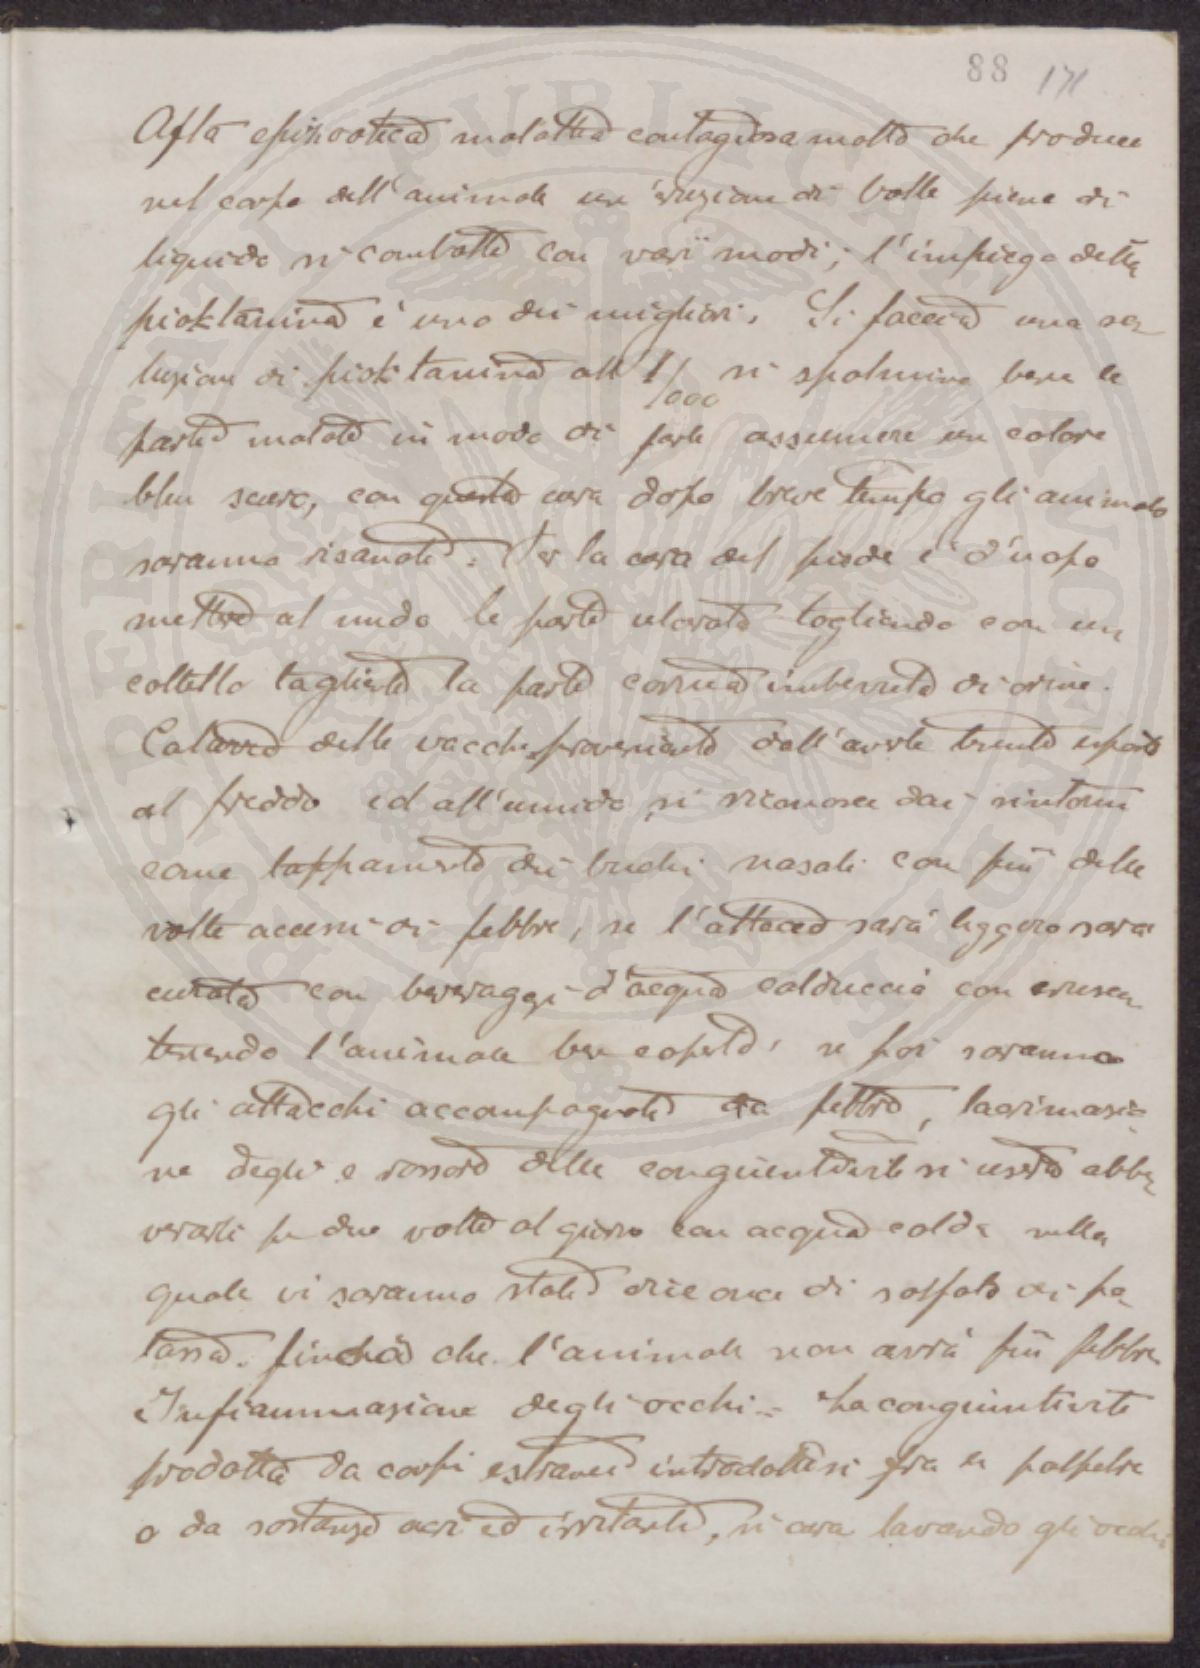 88 171
Afta epizootica malattia contagiosa molto che produce
nel corpo dell'animale un'eruzione di bolle piene di
liquido si combatte con varii modi; l'impiego della
pioktanina è uno dei migliori. Si faccia una so_
luzione di pioktanina all 1/000 si spalmino bene le
parti malate in modo di farle assumere un colore
bleu scuro, con questa cura dopo breve tempo gli animali
saranno risanati. Per la cura del piede è d'uopo
mettere al nudo le parti ulcerate togliendo con un
coltello tagliente la parte cornea imbevuta di orine.
Catarro delle vacche proveniente dall'averle tenute esposte
al freddo ed all'umido, si riconosce dai sintomi
come tappamento dei buchi nasali con più delle
volte accessi di febbre, se l'attacco sarà leggero sarà
curato con beveraggi d'acqua calduccia con crusca
tenendo l'animale ben coperto, se poi saranno
gli attacchi accompagnati da febbre, lacrimazio_
ne degli e rossore delle congiuentivite si userà abbe_
verarli per due volte al giorno con acqua calda nella
quale vi saranno state due once di solfato di po_
tassa. finchè che l'animale non avrà più febbre.
Infiammazione degli occhi = La conguintivite
prodotta da corpi estranei introdottisi fra le palpebre
o da sostanze acri ed irritanti, si cura lavando gli occhi
PROPRIETÀ PVBLICA